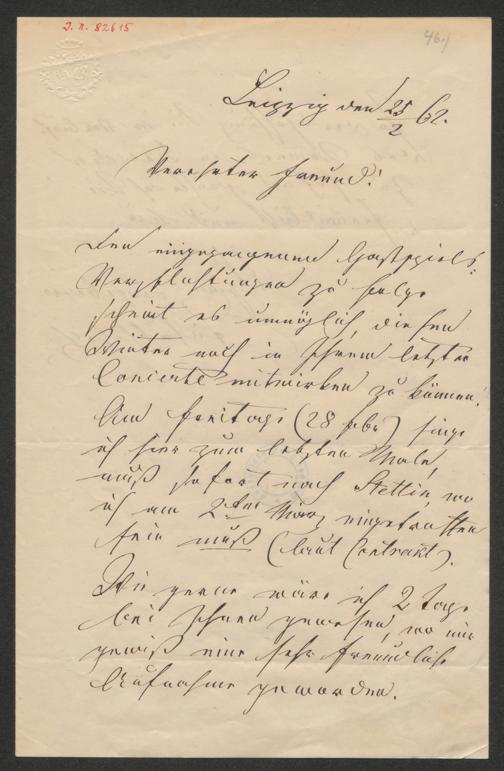 J. N. 82615
46.)
Leipzig den 25/2 62.
Verehrter Freund!
Den eingegangenen Gastspiels-
Verpflichtungen zu folge
scheint es unmöglich, diesen
Winter noch in Ihrem letzten
Concerte mitwirken zu können.
Am Freitage (28 Feb.) singe
ich hier zum letzten Male,
muß sofort nach Stettin, wo
ich am 2ten März eingetroffen
sein muß (laut Contrakt).
Wie gerne wäre ich 2 Tage
bei Ihnen gewesen, wo mir
gewiß eine sehr freundliche
Aufnahme geworden.